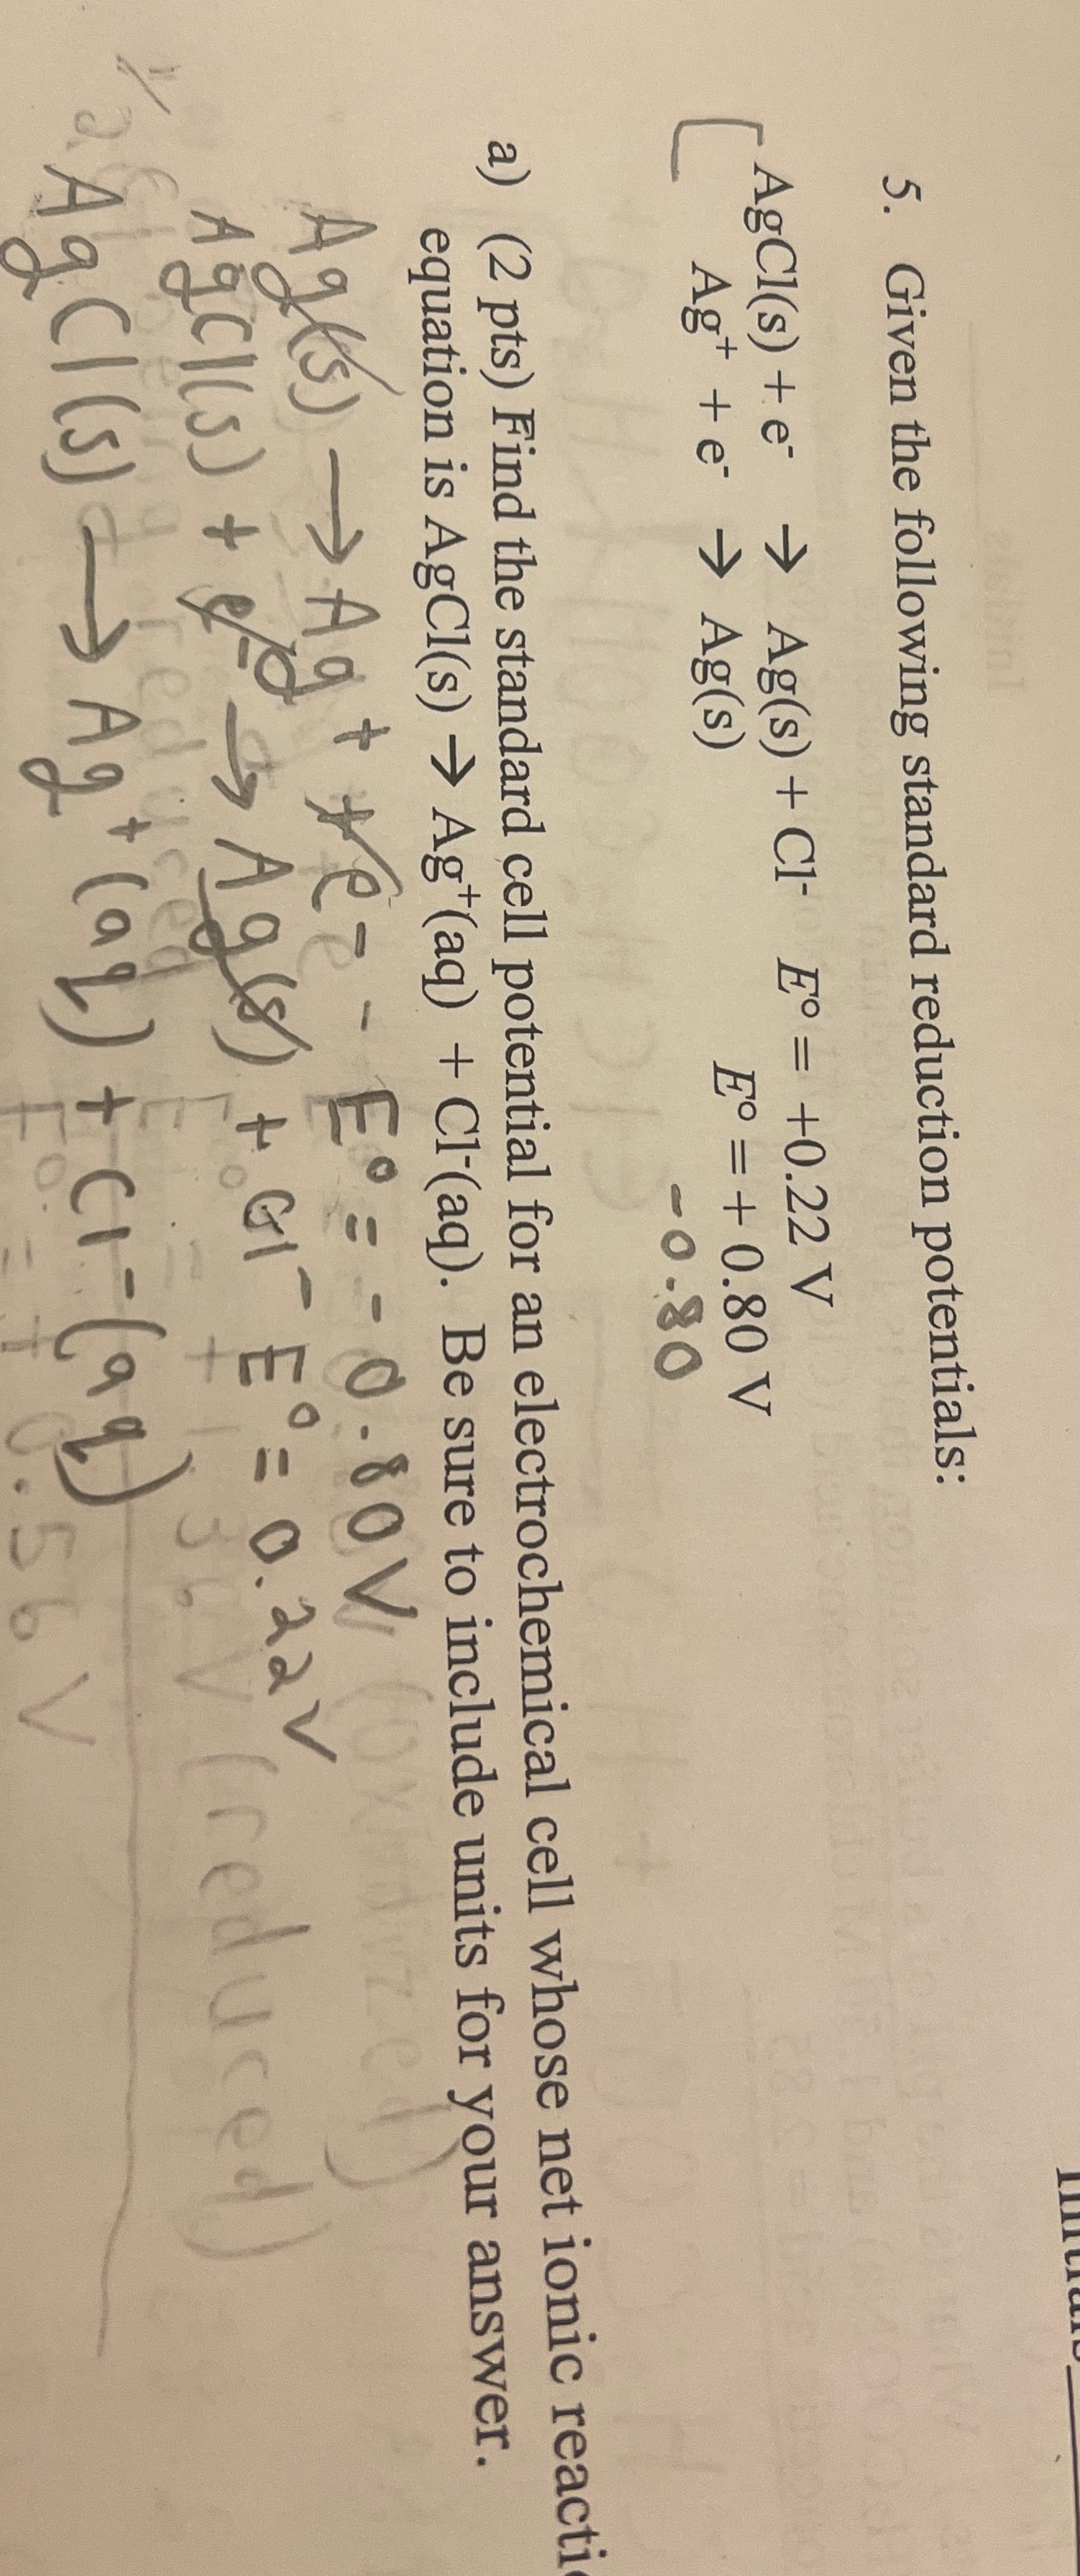 5. Given the following standard reduction potentials:
AgCl(s) + e⁻ → Ag(s) + Cl⁻ E° = +0.22 V
Ag⁺ + e⁻ → Ag(s) E° = + 0.80 V
-0.80
a) (2 pts) Find the standard cell potential for an electrochemical cell whose net ionic
equation is AgCl(s) → Ag⁺(aq) + Cl⁻(aq). Be sure to include units for your answer.
Ag(s) → Ag⁺ + e⁻ E° = -0.80V
AgCl(s) + e⁻ → Ag(s) + Cl⁻ E° = 0.22V
AgCl(s) → Ag⁺(aq) + Cl⁻(aq)